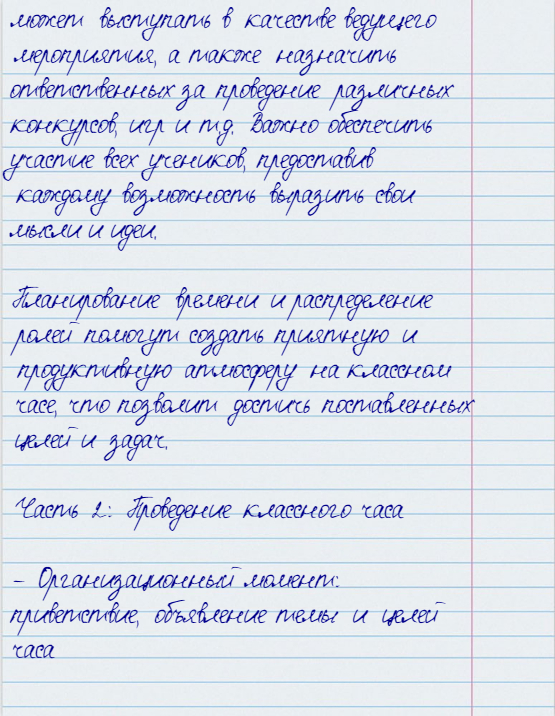 может выступать в качестве ведущего
мероприятия, а также назначить
ответственных за проведение различных
конкурсов, игр и т.д. Важно обеспечить
участие всех учеников, предоставив
каждому возможность выразить свои
мысли и идеи.
Планирование времени и распределение
ролей помогут создать приятную и
продуктивную атмосферу на классном
часе, что позволит достичь поставленных
целей и задач.
Часть 2: Проведение классного часа
- Организационный момент:
приветствие, объявление темы и целей
часа